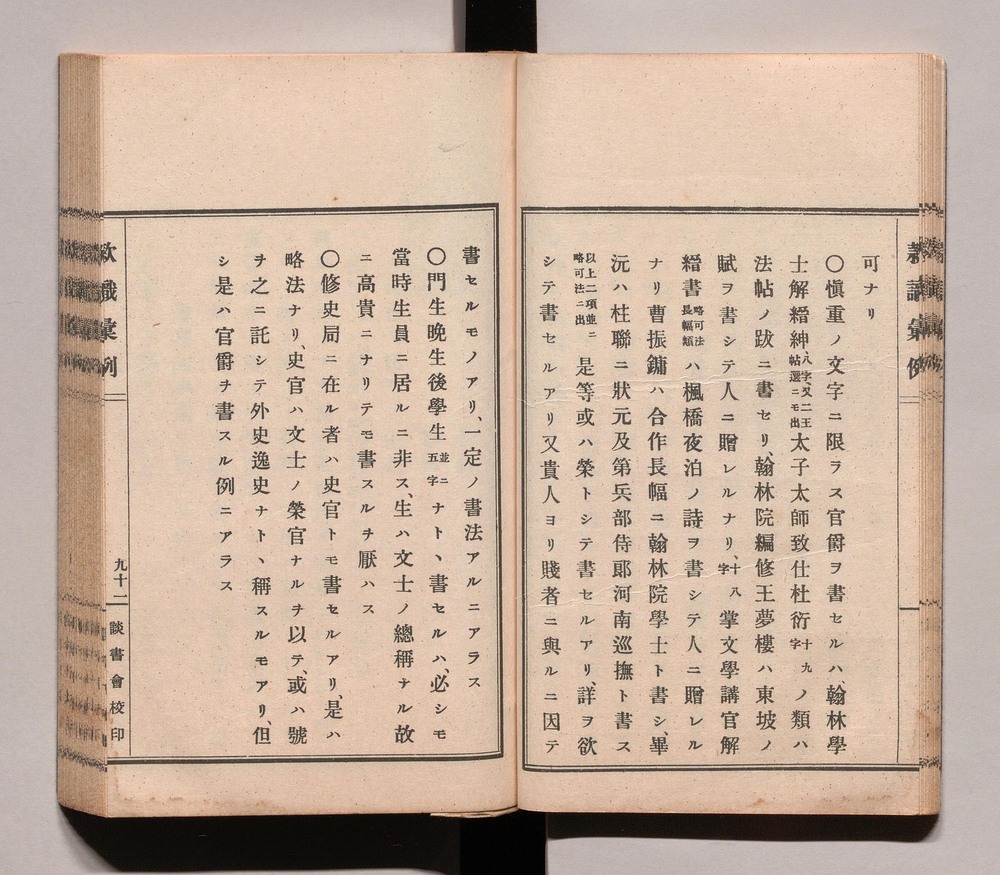 可ナリ
〇愼重ノ文字ニ限ヲス官爵ヲ書セルハ、翰林學
士解縉紳、八字、又二王帖選ニモ出太子太師致仕杜衍十九字ノ類ハ
法帖ノ跋ニ書セリ、翰林院編修王夢樓ハ東坡ノ
賦ヲ書シテ人ニ贈レルナリ、十八字掌文學講官解
縉書略可法長幅類ハ楓橋夜泊ノ詩ヲ書シテ人ニ贈レル
ナリ曹振鏞ハ合作長幅ニ翰林院學士ト書シ、畢
沅ハ柱聯ニ狀元及第兵部侍郎河南巡撫ト書ス
以上二項並ニ略可法ニ出是等或ハ榮トシテ書セルアリ、詳ヲ欲
シテ書セルアリ又貴人ヨリ賤者ニ與ルニ因テ
書セルモノアリ、一定ノ書法アルニアラス
〇門生晚生後學生並ニ五字ナト、書セルハ、必シモ
當時生員ニ居ルニ非ス、生ハ文士ノ總稱ナル故
ニ高貴ニナリテモ書スルヲ厭ハス
〇修史局ニ在ル者ハ史官トモ書セルアリ、是ハ
略法ナリ、史官ハ文士ノ榮官ナルヲ以テ、或ハ號
ヲ之ニ託シテ外史逸史ナト、稱スルモアリ、但
シ是ハ官爵ヲ書スル例ニアラス
款識彙例
九十二
談書會校印